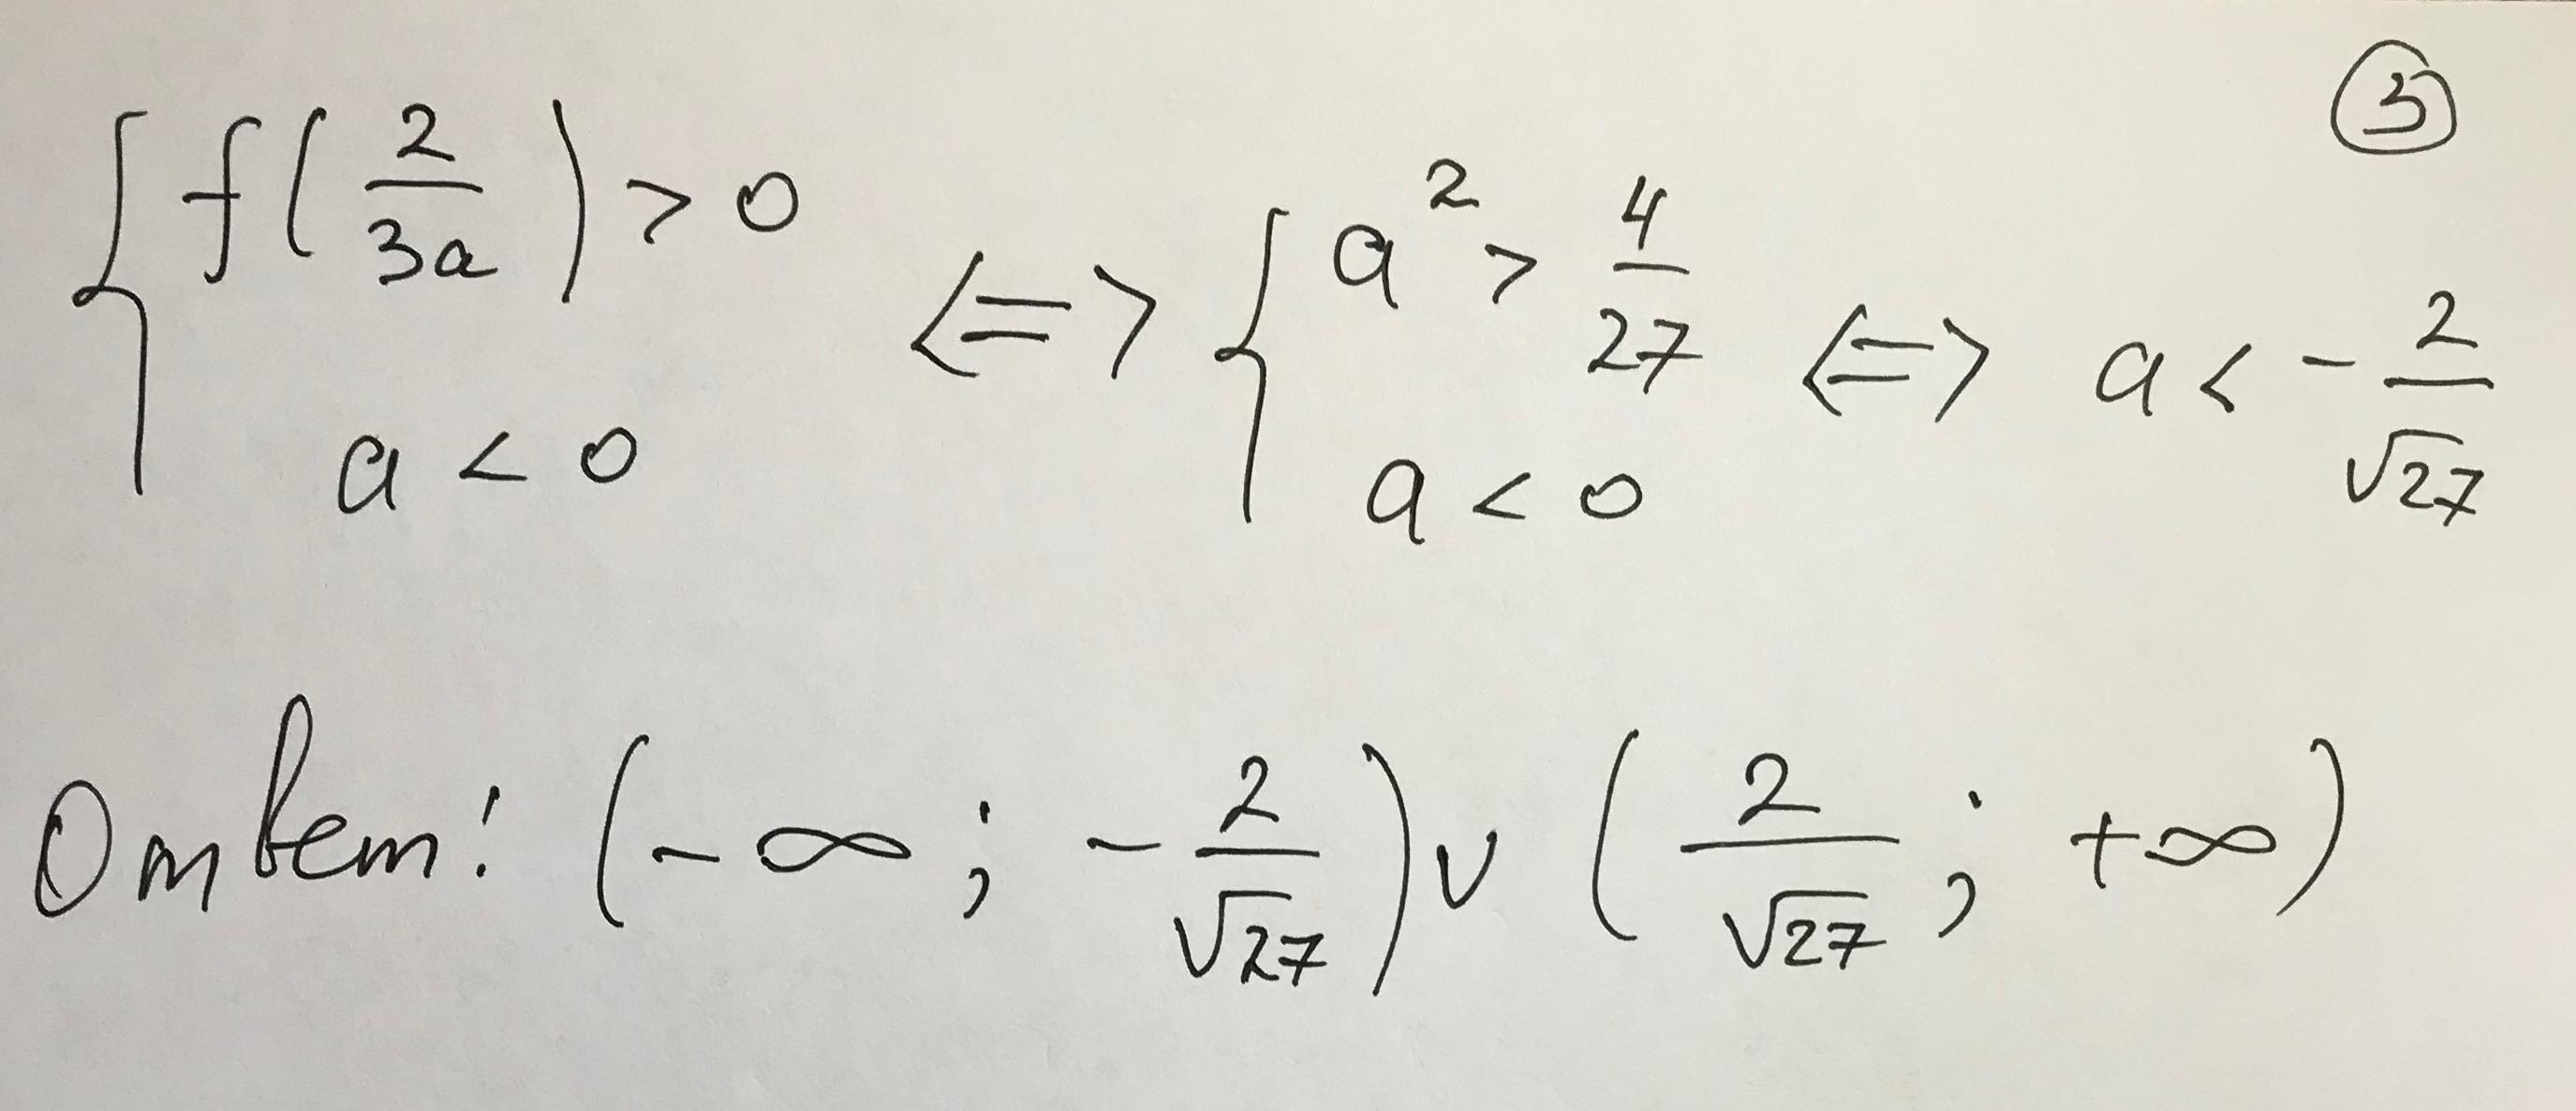 ③
{ f(2/3a) > 0
a < 0 <=> { a² > 4/27
a < 0 <=> a < - 2/√27
Ответ: (-∞; - 2/√27) ∪ (2/√27; +∞)